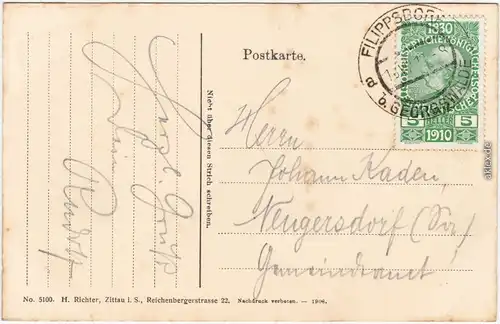 Postkarte.
1830
FILIPPSDORF
b. GEORGSWALDE
a
5 HELLER 5
1910
Nicht über diesen Strich schreiben.
Herzl. Gruß
Rudolf
Herrn
Johann Raden,
Neugersdorf (Sa.)
Gemeindeamt
No. 5100. H. Richter, Zittau i. S., Reichenbergerstrasse 22. Nachdruck verboten. — 1906.